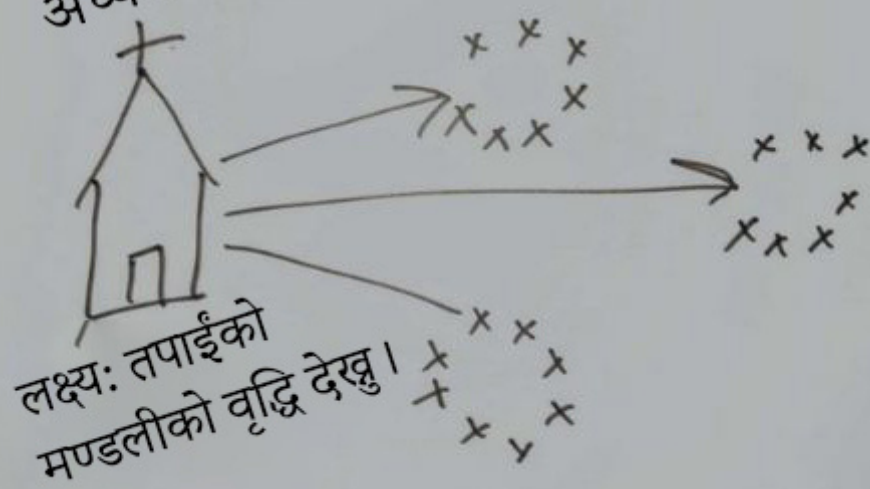 लक्ष्य: तपाईंको
मण्डलीको वृद्धि देख्नु।